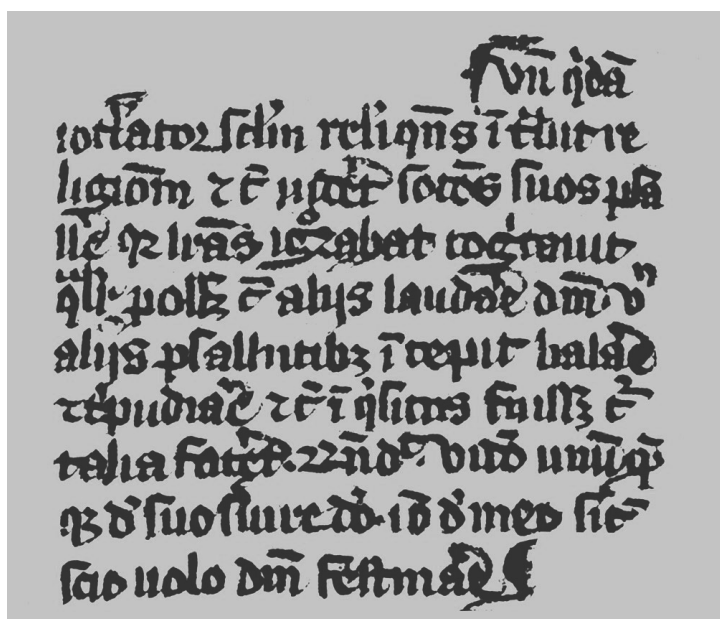 Fuit qͥdā
ioclator sclm reliqns ī trauit re
ligiom ⁊ cū uidet socios suos psa
lle qꝛ lrās ignorabat cogitauit
qlr posset cū alijs laudare dm vn
alijs psallentibꝫ ī cepit balare
tripudiare ⁊ cū ī qͥsitus fuissꝫ cͬ
talia facet. Rndit video unūqm
qꝫ d̓ suo seruire deo. iō d̓ meo sicͭ
scio uolo dm festiuare